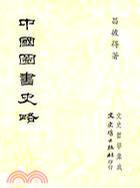 昌彼得著
中國圖書史略
文史哲學集成
文史哲出版社印行